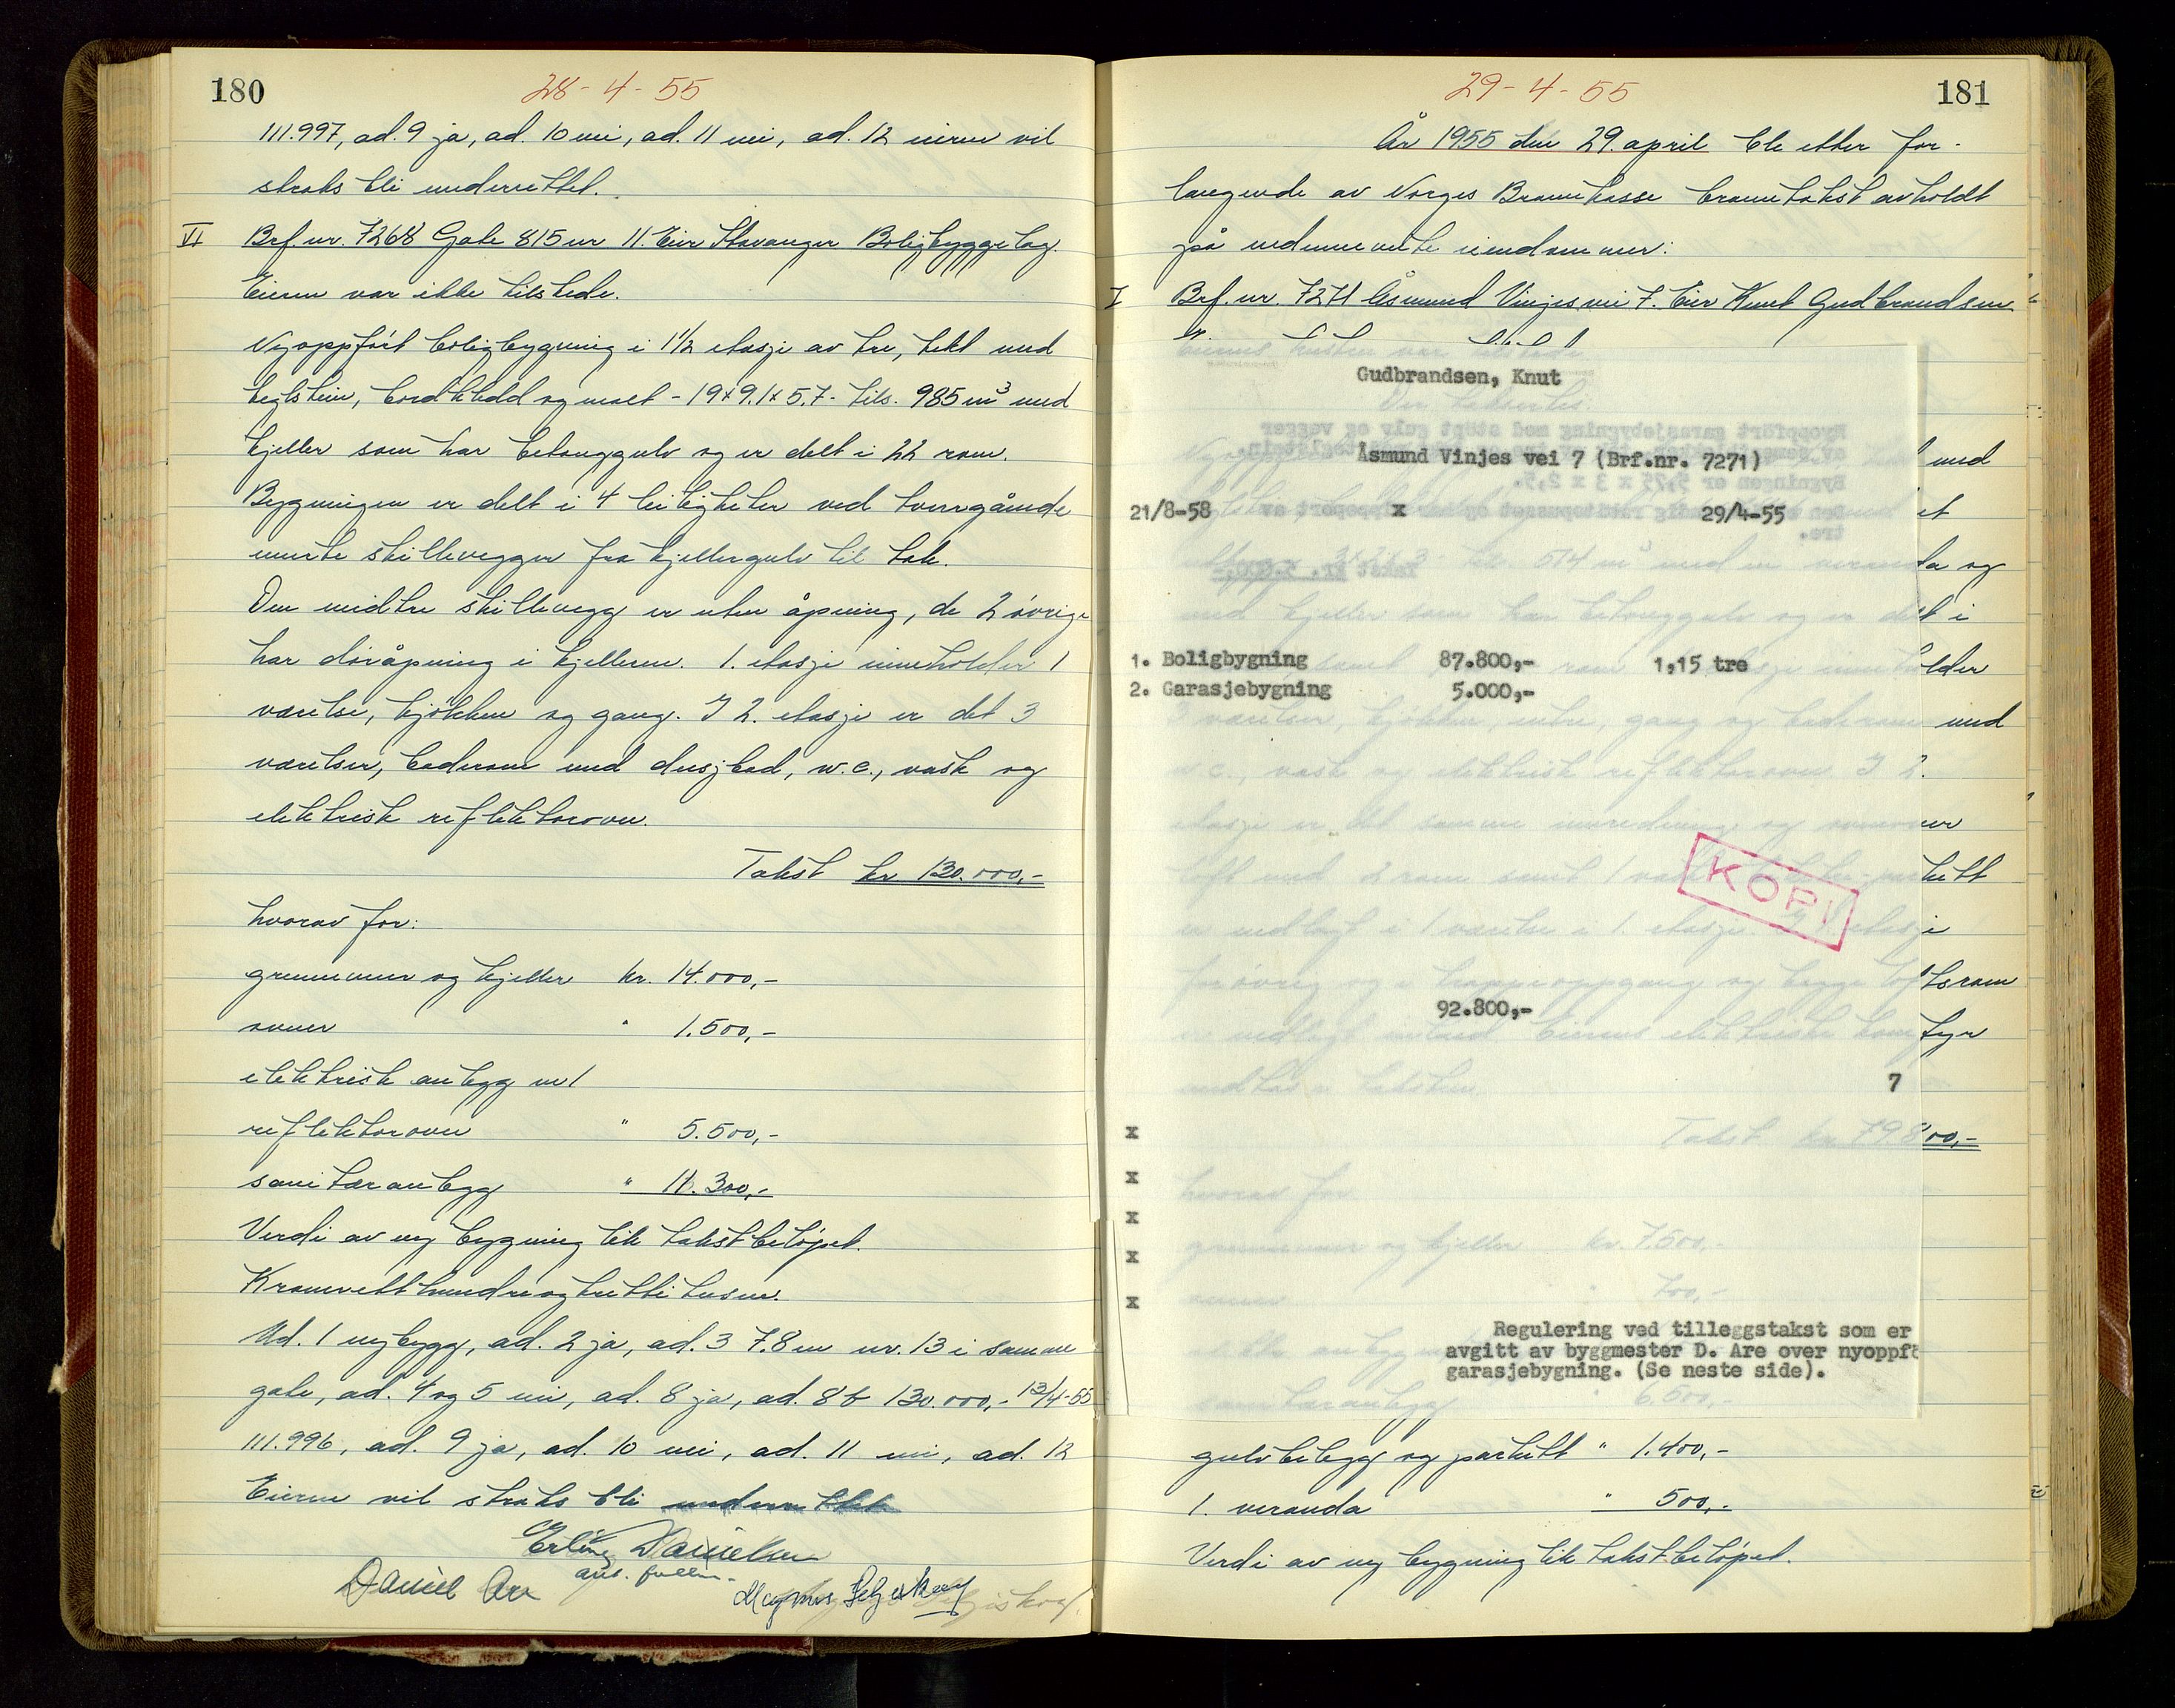 180
28-4-55
111.997, ad. 9 ja, ad. 10 nei, ad. 11 nei, ad. 12 eieren vil
straks bli underrettet.
VI Brf. nr. 7268 Gate 815 nr 11. Eier Stavanger Boligbyggelag.
Eieren var ikke tilstede.
Nyoppført boligbygning i 1 1/2 etasje av tre, tekt med
teglstein, bordkledd og malt - 19x9.1x5.7 - tils. 985 m³ med
kjeller som har betonggulv og er delt i 22 rom.
Bygningen er delt i 4 leiligheter ved tverrgående
murte skillevegger fra kjellergulv til tak.
Den midtre skillevegg er uten åpning, de 2 øvrige
har døråpning i kjelleren. 1. etasje inneholder 1
værelse, kjøkken og gang. I 2. etasje er det 3
værelser, baderom med dusjbad, w.c., vask og
elektrisk reflektorovn.
Takst kr 130.000,-
hvorav for:
grunnmur og kjeller kr. 14.000,-
ovner " 1.500,-
elektrisk anlegg m/
reflektorovn " 5.500,-
sanitæranlegg " 11.300,-
Verdi av ny bygning lik takstbeløpet.
Kroneretthundreogtrettitusen.
Ad. 1 nybygg, ad. 2 ja, ad. 3 7.8 m nr. 13 i samme
gate, ad. 4 og 5 nei, ad. 8 ja, ad. 8b 130.000,- 13/4-55
111.996, ad. 9 ja, ad. 10 nei, ad. 11 nei, ad. 12
Eieren vil straks bli underrettet
Erling Danielsen
Daniel Are
Magnus
181
29-4-55
År 1955 den 29. april ble etter for-
langende av Norges Brannkasse branntakst avholdt
på nedennevnte eiendommer:
I Brf. nr. 7271 Åsmund Vinjes vei 7. Eier Knut Gudbrandsen
Gudbrandsen, Knut
Åsmund Vinjes vei 7 (Brf.nr. 7271)
med
21/8-58 x 29/4-55
et
da og
med kjeller som har betonggulv og er delt i
1. Boligbygning 87.800,- 1,15 tre
2. Garasjebygning 5.000,-
værelser, kjøkken, entre, gang og baderom med
w.c., vask og elektrisk reflektorovn. I 2.
etasje er det samme innredning og
loft med 2 rom samt 1
KOPI
er nedlagt i 1 værelse i 1. etasje
92.800,-
7
Takst kr 79.800,-
x
x
x
x
x
hvorav for
grunnmur og kjeller kr. 7.500,-
ovner " 700,-
Regulering ved tilleggstakst som er
avgitt av byggmester D. Are over nyoppfø
garasjebygning. (Se neste side).
sanitæranlegg " 6.500,-
gulvbelegg og parkett " 1.400,-
1. veranda " 500,-
Verdi av ny bygning lik takstbeløpet.